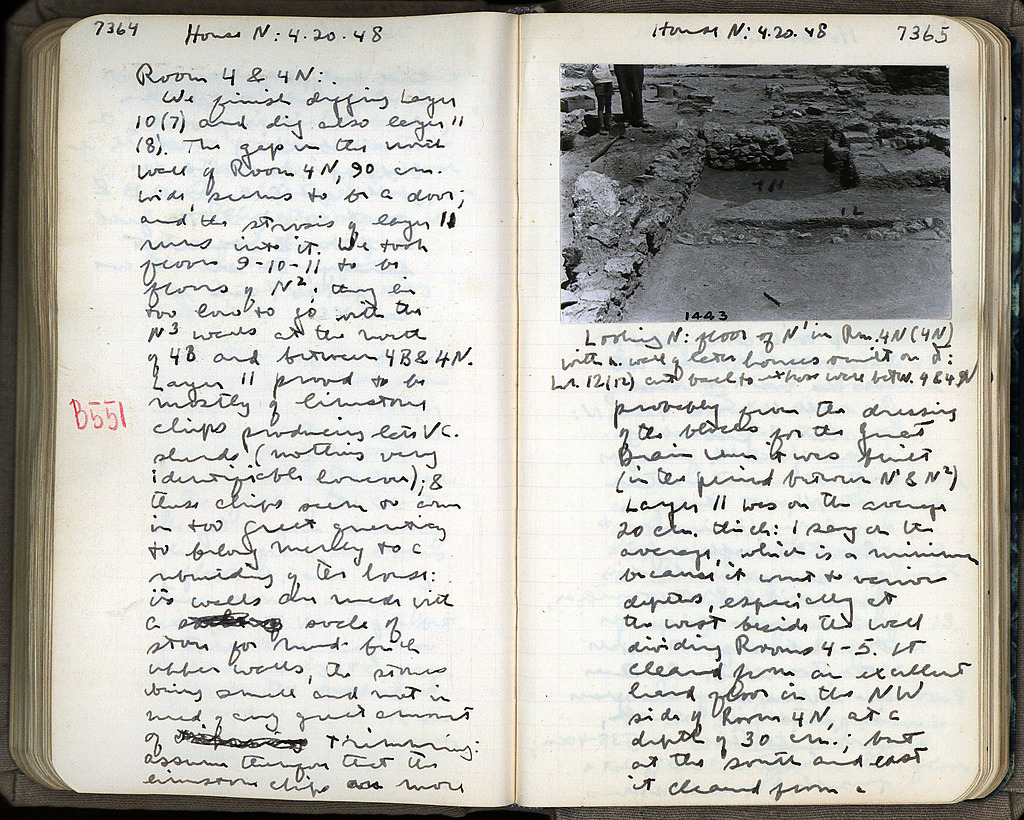 7364 House N: 4.20.48
Room 4 & 4N:.
We finish digging layer
10(7) and dig also layer 11
(8). The gap in the north
wall of Room 4N, 90 cm.
wide, seems to be a door;
and the strosis of layer 11
runs into it. We took
floors 9-10-11 to be
floors of N²: they lie
too low to go with the
N³ walls at the north
of 4B and between 4B & 4N.
Layer 11 proved to be
mostly of limestone
chips producing late V c.
sherds (nothing very
identifiable however); &
these chips seem to come
in too great quantity
to belong merely to a
rebuilding of the house:
its walls are made with
a socle of
stone for mud-brick
upper walls, the stones
being small and not in
need of any great amount
of trimming:
assume therefore that the
limestone chips are more
B551
House N: 4.20.48 7365
7 11
12
1443
Looking N: floor of N¹ in Rm. 4N (4N)
with n. wall of later houses built on it:
Lvl. 12(12) cut back to expose were betw. 4 & 4N
probably from the dressing
of the blocks for the Great
Drain when it was built
(in the period between N¹ & N²)
Layer 11 was on the average
20 cm. thick: I say on the
average, which is a minimum
because it went to various
depths, especially at
the west beside the wall
dividing Rooms 4-5. It
cleaned from an excellent
hard floor in the NW
side of Room 4N, at a
depth of 30 cm.; but
at the south and east
it cleaned from a